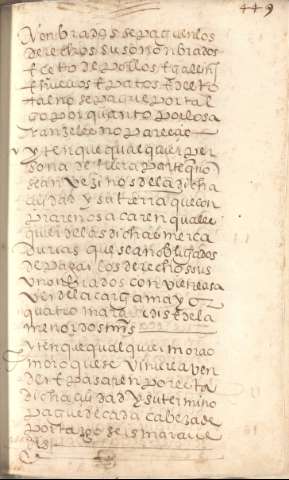 449
nonbrados se paguen los
derechos suso nonbrados
eceto de pollos e gallin
e huevos e patos q̃ desto
tal no se pague portal
go por quanto por los a
ranzeles no parece
yten que qualquier per
sona de fuera parte q̃ no
sean vezinos de la dicha
çiudad y su tierra que con
praren o sacaren qualqu
quier de las dichas merca
durias que sean obligados
de pagar los derechos sus
o nonbrados con viene a sa
ver de la carga mayor
quatro mara dis de la
menor dos mrs
yten que qualquier moro o a
moro que se viniere a ven
der e pasaren por esta
dicha çiudad y su termino
pague de cada cabeza de
portazgo seis marave
dis